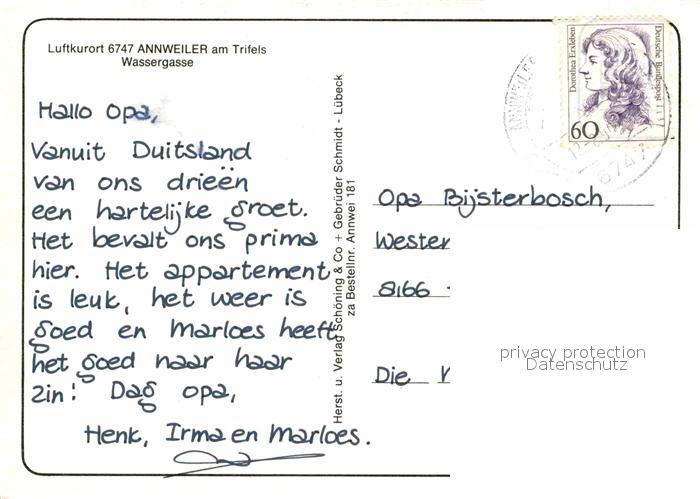 Luftkurort 6747 ANNWEILER am Trifels
Wassergasse
Hallo Opa,
Vanuit Duitsland
van ons drieën
een hartelijke groet.
Het bevalt ons prima
hier. Het appartement
is leuk, het weer is
goed en Marloes heeft
het goed naar haar
zin! Dag opa,
Henk, Irma en Marloes.
Herst. u. Verlag Schöning & Co + Gebrüder Schmidt - Lübeck
za Bestellnr. Annwei 181
Dorothea Erxleben
Deutsche Bundespost
60
ANNWEILER
6747
Opa Bijsterbosch,
Wester
8166
Die
privacy protection
Datenschutz